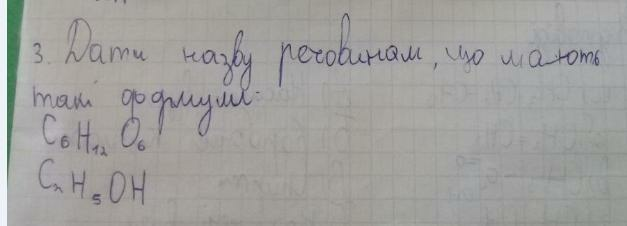 3. Дати назву речовинам, що мають
такі формули:
C₆H₁₂O₆
C₂H₅OH